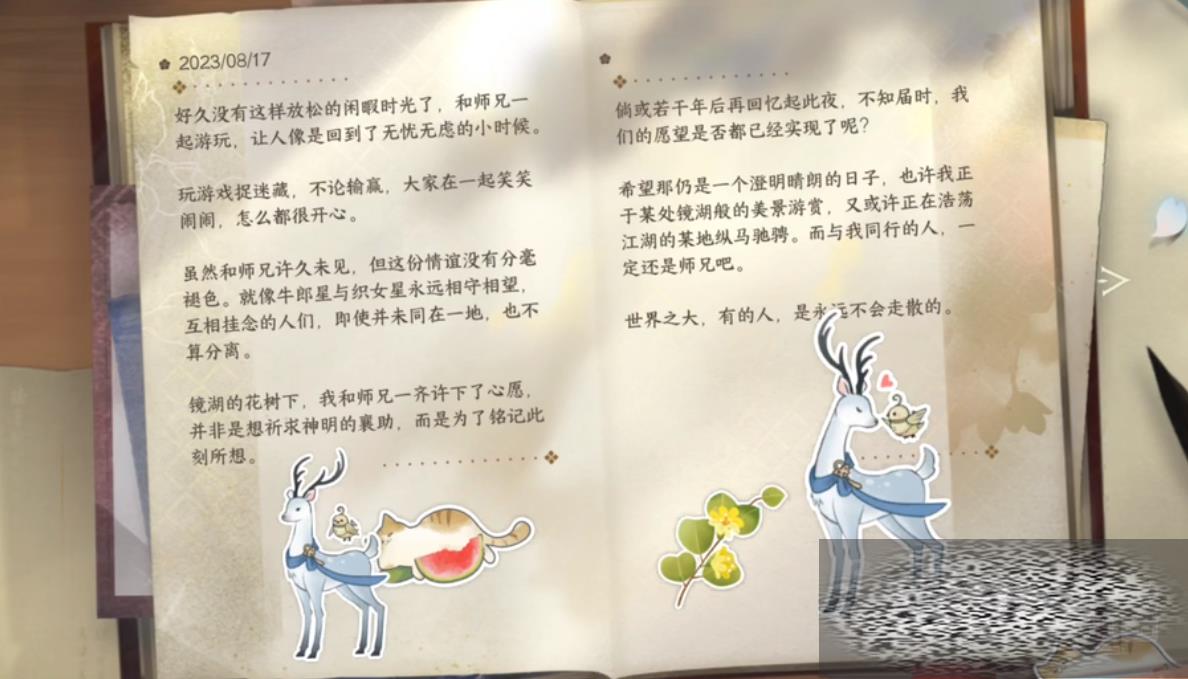 2023/08/17
好久没有这样放松的闲暇时光了，和师兄一
起游玩，让人像是回到了无忧无虑的小时候。
玩游戏捉迷藏，不论输赢，大家在一起笑笑
闹闹，怎么都很开心。
虽然和师兄许久未见，但这份情谊没有分毫
褪色。就像牛郎星与织女星永远相守相望，
互相挂念的人们，即使并未同在一地，也不
算分离。
镜湖的花树下，我和师兄一齐许下了心愿，
并非是想祈求神明的襄助，而是为了铭记此
刻所想。
倘或若干年后再回忆起此夜，不知届时，我
们的愿望是否都已经实现了呢？
希望那仍是一个澄明晴朗的日子，也许我正
于某处镜湖般的美景游赏，又或许正在浩荡
江湖的某地纵马驰骋。而与我同行的人，一
定还是师兄吧。
世界之大，有的人，是永远不会走散的。